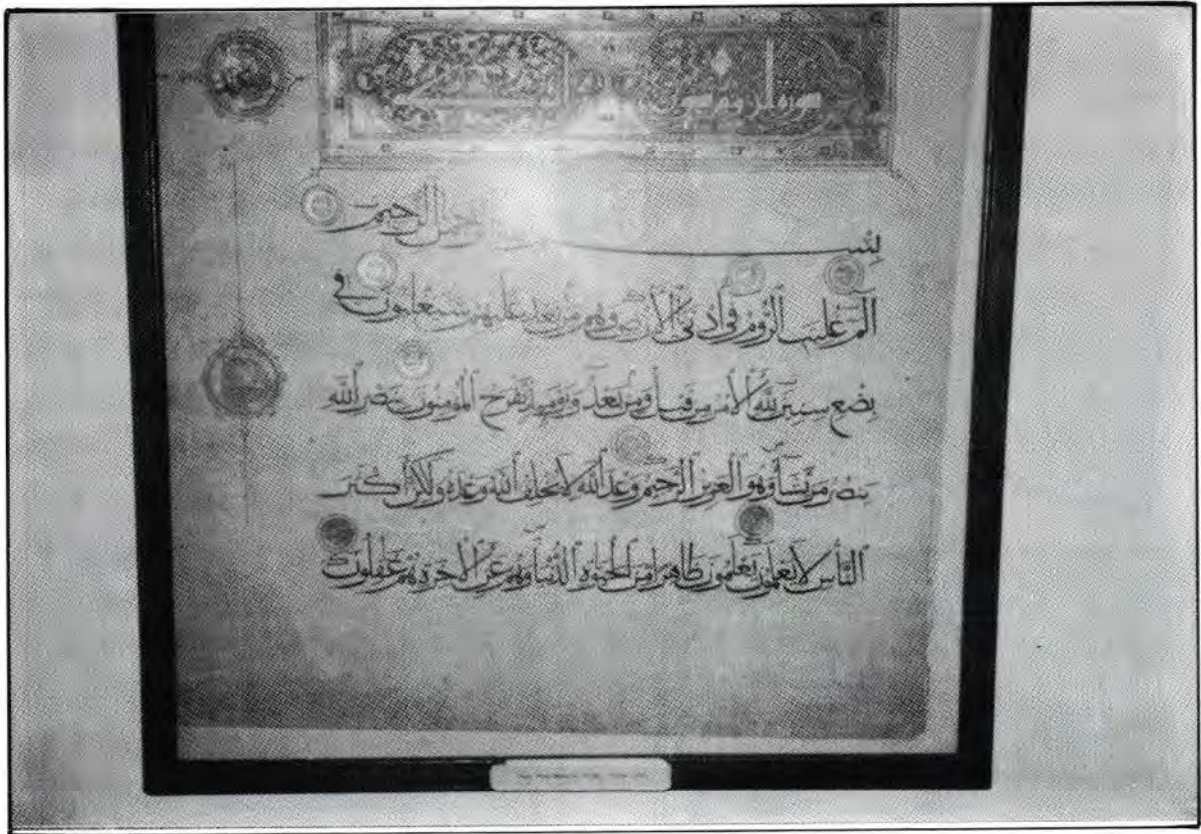 سورة الروم ستون
بِسْمِ الرحمن الرحيم
الٓمٓ غُلِبَتِ الرُّومُ فِي أَدْنَى الْأَرْضِ وَهُم مِّن بَعْدِ غَلَبِهِمْ سَيَغْلِبُونَ فِي
بِضْعِ سِنِينَ لِلَّهِ الْأَمْرُ مِن قَبْلُ وَمِن بَعْدُ وَيَوْمَئِذٍ يَفْرَحُ الْمُؤْمِنُونَ بِنَصْرِ اللَّهِ
يَنصُرُ مَن يَشَاءُ وَهُوَ الْعَزِيزُ الرَّحِيمُ وَعْدَ اللَّهِ لَا يُخْلِفُ اللَّهُ وَعْدَهُ وَلَٰكِنَّ أَكْثَرَ
النَّاسِ لَا يَعْلَمُونَ يَعْلَمُونَ ظَاهِرًا مِّنَ الْحَيَوٰةِ الدُّنْيَا وَهُمْ عَنِ الْآخِرَةِ هُمْ غَافِلُونَ